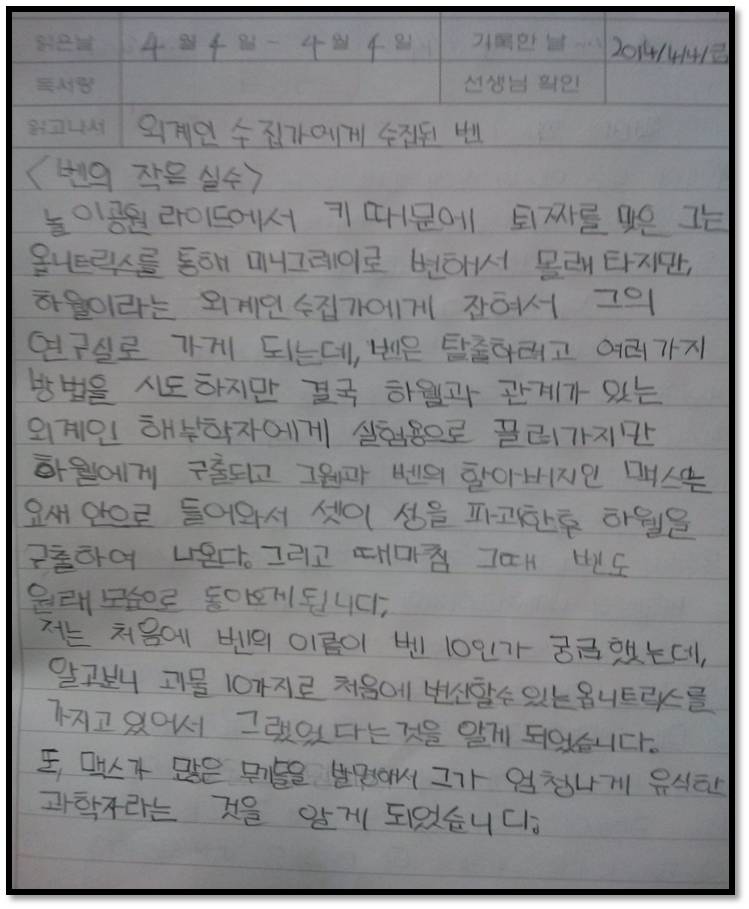 읽은날 4월 4일 - 4월 4일 기록한 날 2014/4/4/금
독서량 선생님 확인
읽고나서 외계인 수집가에게 수집된 벤
<벤의 작은 실수>
놀이공원 라이드에서 키 때문에 퇴짜를 맞은 그는
옴니트릭스를 통해 미니그레이로 변해서 몰래 타지만,
하월이라는 외계인 수집가에게 잡혀서 그의
연구실로 가게 되는데, 벤은 탈출하려고 여러가지
방법을 시도하지만 결국 하웰과 관계가 있는
외계인 해부학자에게 실험용으로 끌려가지만
하월에게 구출되고 그웬과 벤의 할아버지인 맥스는
요새 안으로 들어와서 셋이 성을 파괴한후 하월을
구출하여 나온다. 그리고 때마침 그때 벤도
원래 모습으로 돌아오게됩니다.
저는 처음에 벤의 이름이 벤 10인가 궁금했는데,
알고보니 괴물 10가지로 처음에 변신할수있는 옴니트릭스를
가지고있어서 그랬었다는것을 알게 되었습니다.
또, 맥스가 많은 무기들을 발명해서 그가 엄청나게 유식한
과학자라는 것을 알게 되었습니다.